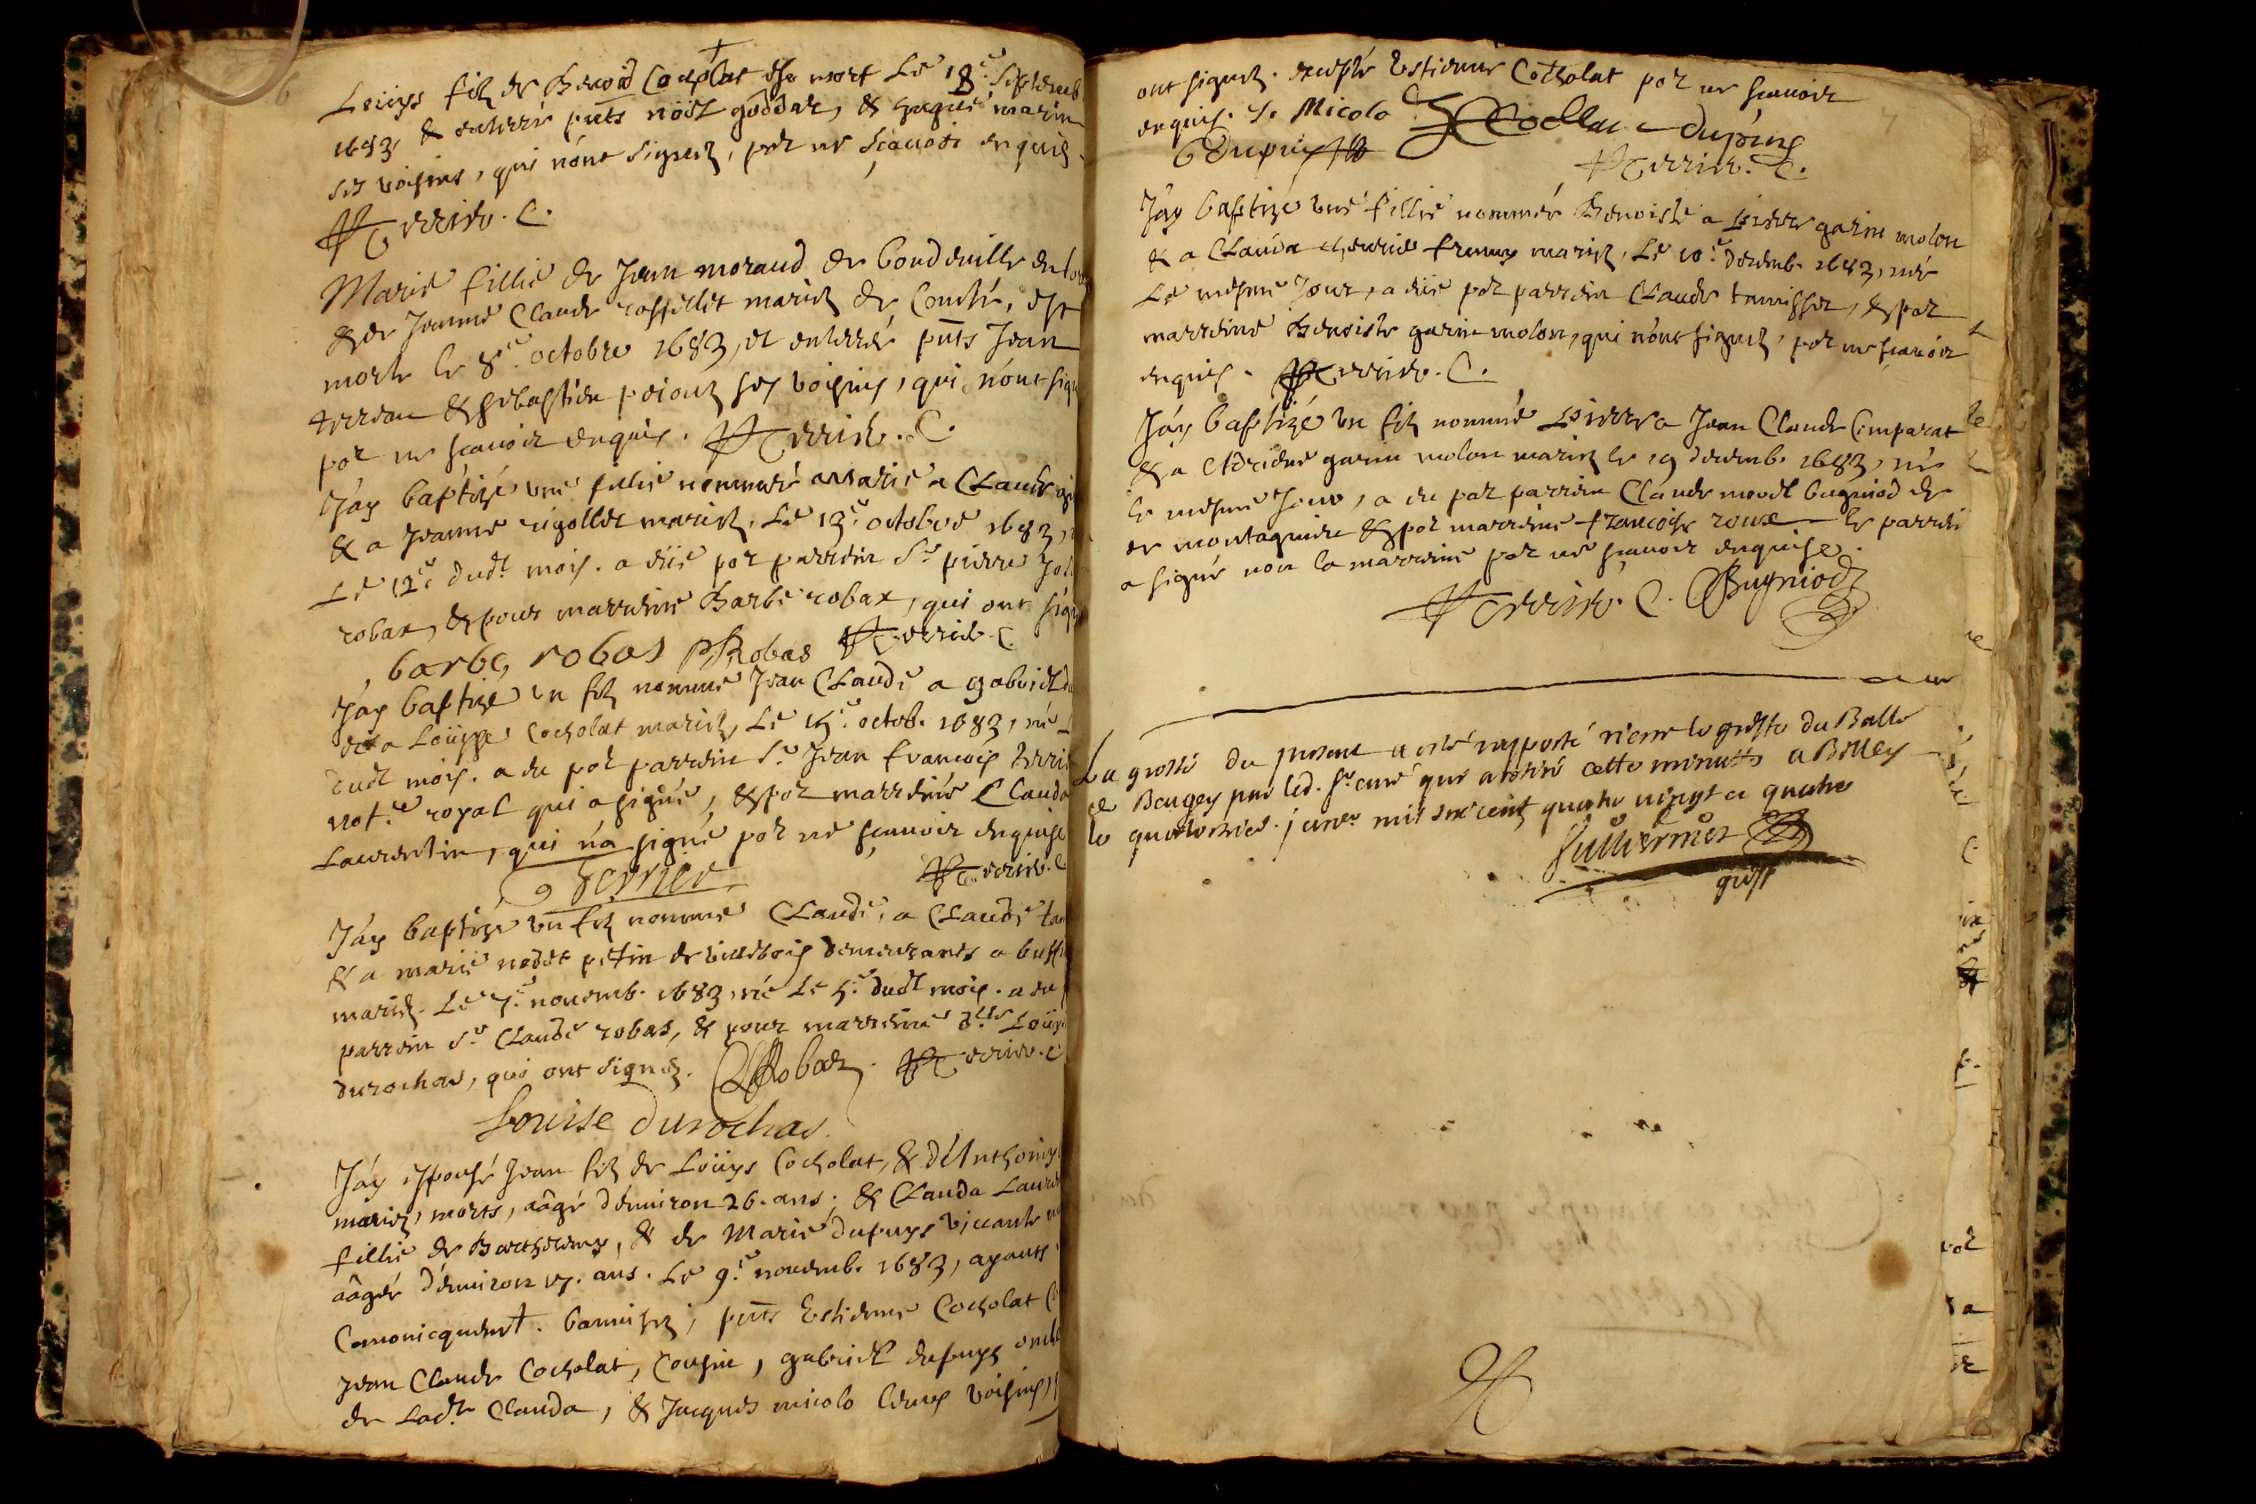 Loüys filz de Benoid Cocholat est mort Le 18.e septemb
1683, & enterré pnts noël goddar, & hugue marin
ses voisins, qui n'ont signez, por ne sçavoir enquis.
Terrier. C.
Marie fillie de Jean moraud de
& de Jeanne Claude rossillet mariez de Comté, est
morte le 8.e octobre 1683, et enterrée pnts Jean
terreau & sebastien pejouz ses voisins, qui n'ont sign
por ne scavoir enquis. Terrier. C.
J'ay baptizé une fillie nommée Marie a Claude
& a Jeanne rigollet mariez. Le 13.e octobre 1683,
Le 12.e dudt mois. a eüe por parrein Sr pierre
robax, & pour marreine Barbe robax, qui ont sign
barbe robas P Robas Terrier. C
J'ay baptizé un filz nommé Jean Claude a gabriel
& a Loüyse Cocholat mariez, Le octob. 1683, né
dudt mois. a eu por parrein Sr Jean francois terrier
not.e royal qui a signé, & por marreine Clauda
Laurentin, qui n'a signé por ne scavoir enquise
Terrier Terrier. C
J'ay baptizé un filz nommé Claude, a Claude
& a marie nodet petin de villebois demeurants a
mariez. Le 7.e novemb. 1683, né Le 5.e dudt mois. a eu
parrein Sr Claude robas, & pour marreine dlle Loüyse
durochas, qui ont signez. C Robaz. Terrier. C
Louise durochas.
J'ay espousé Jean filz de Loüys Cocholat, & d'Anthoinye
mariez, morts, aâgé d'environ 26. ans; & Clauda Lauren
fillie de Barthelemy, & de Marie dupuys vivante
aâgée d'environ 17. ans. Le 9.e novemb. 1683, ayants
Canonicquement. pnts Estienne Cocholat
Jean Claude Cocholat, Cousin, gabriel dupuys oncle
de Ladte Clauda, & Jacques micolo leurs voisins,
ont signez. excepté Estienne Cocholat por ne scavoir
enquis. J. Micolo dupuys
G Dupuys Terrier. C.
J'ay baptizé une fillie nommée Benoiste a pierre garin molon
& a Clauda femme mariez, Le 10.e decemb. 1683, née
Le mesme Jour, a eüe por parrein Claude tamisser, & por
marreine Benoiste garin molon, qui n'ont signez, por ne scavoir
enquis. Terrier. C.
J'ay baptizé un filz nommé pierre a Jean Claude Comparat
& a Adriene garin molon mariez le 19 decemb. 1683, né
le mesme Jour, a eu por parrein Claude noel bugniod de
de montagnieu & por marreine francoise roux le parrein
a signé non la marreine por ne scavoir enquise.
Terrier. C. Bugniod
La grosse du present a esté rapporté riere le greffe du Balle
de Beugey par led. Sr curé qui a retiré cette minutte a Belley
le quatorzies. janer mil six cent quatre vingt et quatre
greff